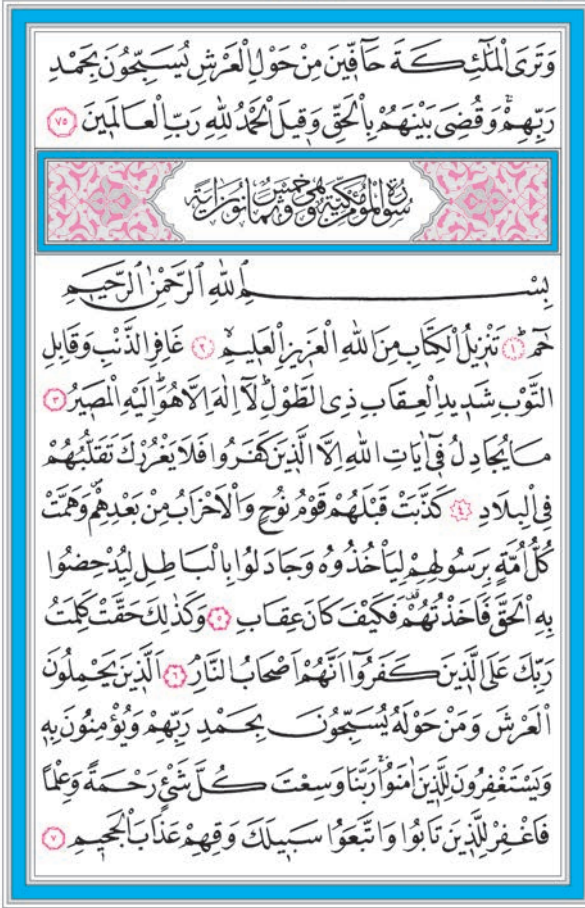 وَتَرَى الْمَلٰٓئِكَةَ حَٓافّ۪ينَ مِنْ حَوْلِ الْعَرْشِ يُسَبِّحُونَ بِحَمْدِ
رَبِّهِمْۚ وَقُضِيَ بَيْنَهُمْ بِالْحَقِّ وَق۪يلَ الْحَمْدُ لِلّٰهِ رَبِّ الْعَالَم۪ينَ ﴿٧٥﴾
سُورَةُ الْمُؤْمِنِ مَكِّيَّةٌ وَهِيَ خَمْسٌ وَثَمَانُونَ اٰيَةً
بِسْمِ اللهِ الرَّحْمٰنِ الرَّح۪يمِ
حٰمٓۜ ﴿١﴾ تَنْز۪يلُ الْكِتَابِ مِنَ اللهِ الْعَز۪يزِ الْعَل۪يمِۙ ﴿٢﴾ غَافِرِ الذَّنْبِ وَقَابِلِ
التَّوْبِ شَد۪يدِ الْعِقَابِ ذِي الطَّوْلِۜ لَٓا اِلٰهَ اِلَّا هُوَۜ اِلَيْهِ الْمَص۪يرُ ﴿٣﴾
مَا يُجَادِلُ ف۪ٓي اٰيَاتِ اللهِ اِلَّا الَّذ۪ينَ كَفَرُوا فَلَا يَغْرُرْكَ تَقَلُّبُهُمْ
فِي الْبِلَادِ ﴿٤﴾ كَذَّبَتْ قَبْلَهُمْ قَوْمُ نُوحٍ وَالْاَحْزَابُ مِنْ بَعْدِهِمْۖ وَهَمَّتْ
كُلُّ اُمَّةٍ بِرَسُولِهِمْ لِيَأْخُذُوهُ وَجَادَلُوا بِالْبَاطِلِ لِيُدْحِضُوا
بِهِ الْحَقَّ فَاَخَذْتُهُمْ۠ فَكَيْفَ كَانَ عِقَابِ ﴿٥﴾ وَكَذٰلِكَ حَقَّتْ كَلِمَتُ
رَبِّكَ عَلَى الَّذ۪ينَ كَفَرُٓوا اَنَّهُمْ اَصْحَابُ النَّارِۢ ﴿٦﴾ اَلَّذ۪ينَ يَحْمِلُونَ
الْعَرْشَ وَمَنْ حَوْلَهُ يُسَبِّحُونَ بِحَمْدِ رَبِّهِمْ وَيُؤْمِنُونَ بِه۪
وَيَسْتَغْفِرُونَ لِلَّذ۪ينَ اٰمَنُواۚ رَبَّنَا وَسِعْتَ كُلَّ شَيْءٍ رَحْمَةً وَعِلْمًا
فَاغْفِرْ لِلَّذ۪ينَ تَابُوا وَاتَّبَعُوا سَب۪يلَكَ وَقِهِمْ عَذَابَ الْجَح۪يمِ ﴿٧﴾